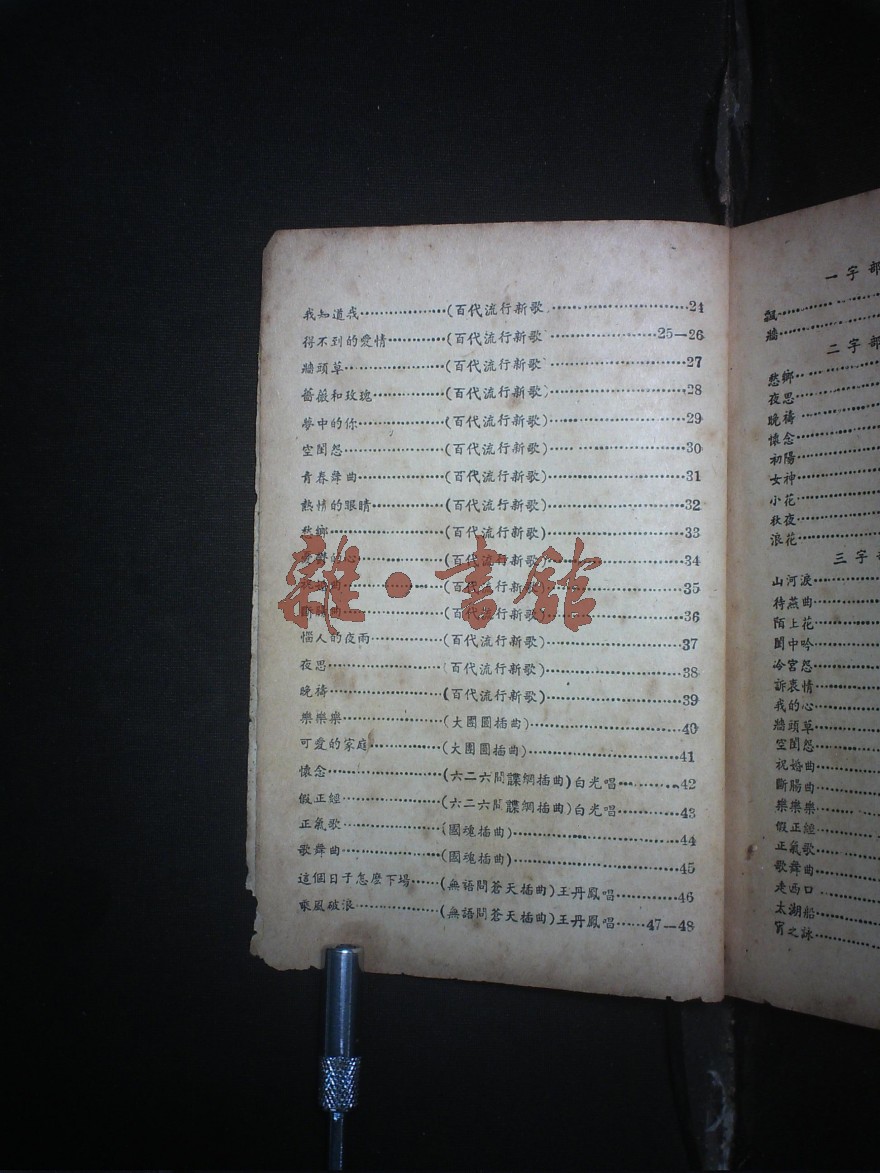 我知道我………………(百代流行新歌…………………………24
得不到的愛情…………(百代流行新歌…………………25—26
牆頭草…………………(百代流行新歌…………………………27
薔薇和玫瑰……………(百代流行新歌)…………………………28
夢中的你………………(百代流行新歌)…………………………29
空閨怨…………………(百代流行新歌)…………………………30
青春舞曲………………(百代流行新歌)…………………………31
熱情的眼睛……………(百代流行新歌)…………………………32
愁鄉……………………(百代流行新歌)…………………………33
的心……………(百代流行新歌)…………………………34
曲…………………(百代流行新歌)…………………………35
斷腸曲…………………(百代流行新歌)…………………………36
惱人的夜雨……………(百代流行新歌)…………………………37
夜思……………………(百代流行新歌)…………………………38
晚禱……………………(百代流行新歌)…………………………39
樂樂樂…………………(大團圓插曲)……………………………40
可愛的家庭……………(大團圓插曲)……………………………41
懷念……………………(六二六間諜網插曲)白光唱…………42
假正經…………………(六二六間諜網插曲)白光唱…………43
正氣歌…………………(國魂插曲)………………………………44
歌舞曲…………………(國魂插曲)………………………………45
這個日子怎麼下場……(無語問蒼天插曲)王丹鳳唱…………46
乘風破浪………………(無語問蒼天插曲)王丹鳳唱……47—48
雜·書館
一字部
飄………
牆………
二字部
愁鄉………
夜思………
晚禱………
懷念………
初陽………
女神………
小花………
秋夜………
浪花………
三字
山河淚………
待燕曲………
陌上花………
閨中吟………
冷宮怨………
訴衷情………
我的心………
牆頭草………
空閨怨………
祝婚曲………
斷腸曲………
樂樂樂………
假正經………
正氣歌………
歌舞曲………
走西口………
太湖船………
宵之詠………